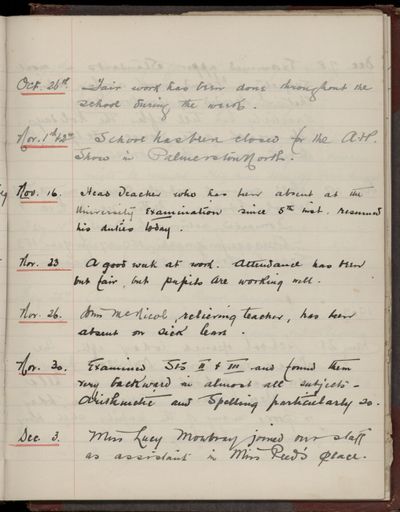 Oct. 26th Fair work has been done throughout the
school during the week.
Nov. 1st & 2nd School has been closed for the A&P.
Show in Palmerston North.
Nov. 16. Head Teacher who has been absent at the
University Examination since 5th inst. resumed
his duties today.
Nov. 23 A good week at word. Attendance has been
but fair, but pupils are working well.
Nov. 26. John McNicol, relieving teacher, has been
absent on sick leave.
Nov. 30. Examined Stds II & III and found them
very backward in almost all subjects -
Arithmetic and Spelling particularly so.
Dec. 3. Miss Lucy Mowbray joined our staff
as assistant in Miss Reed's place.